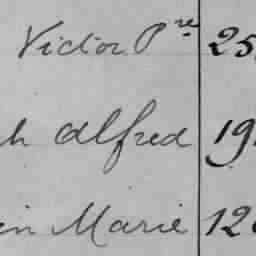 Victor Pre 25
h Alfred 19
in Marie 12